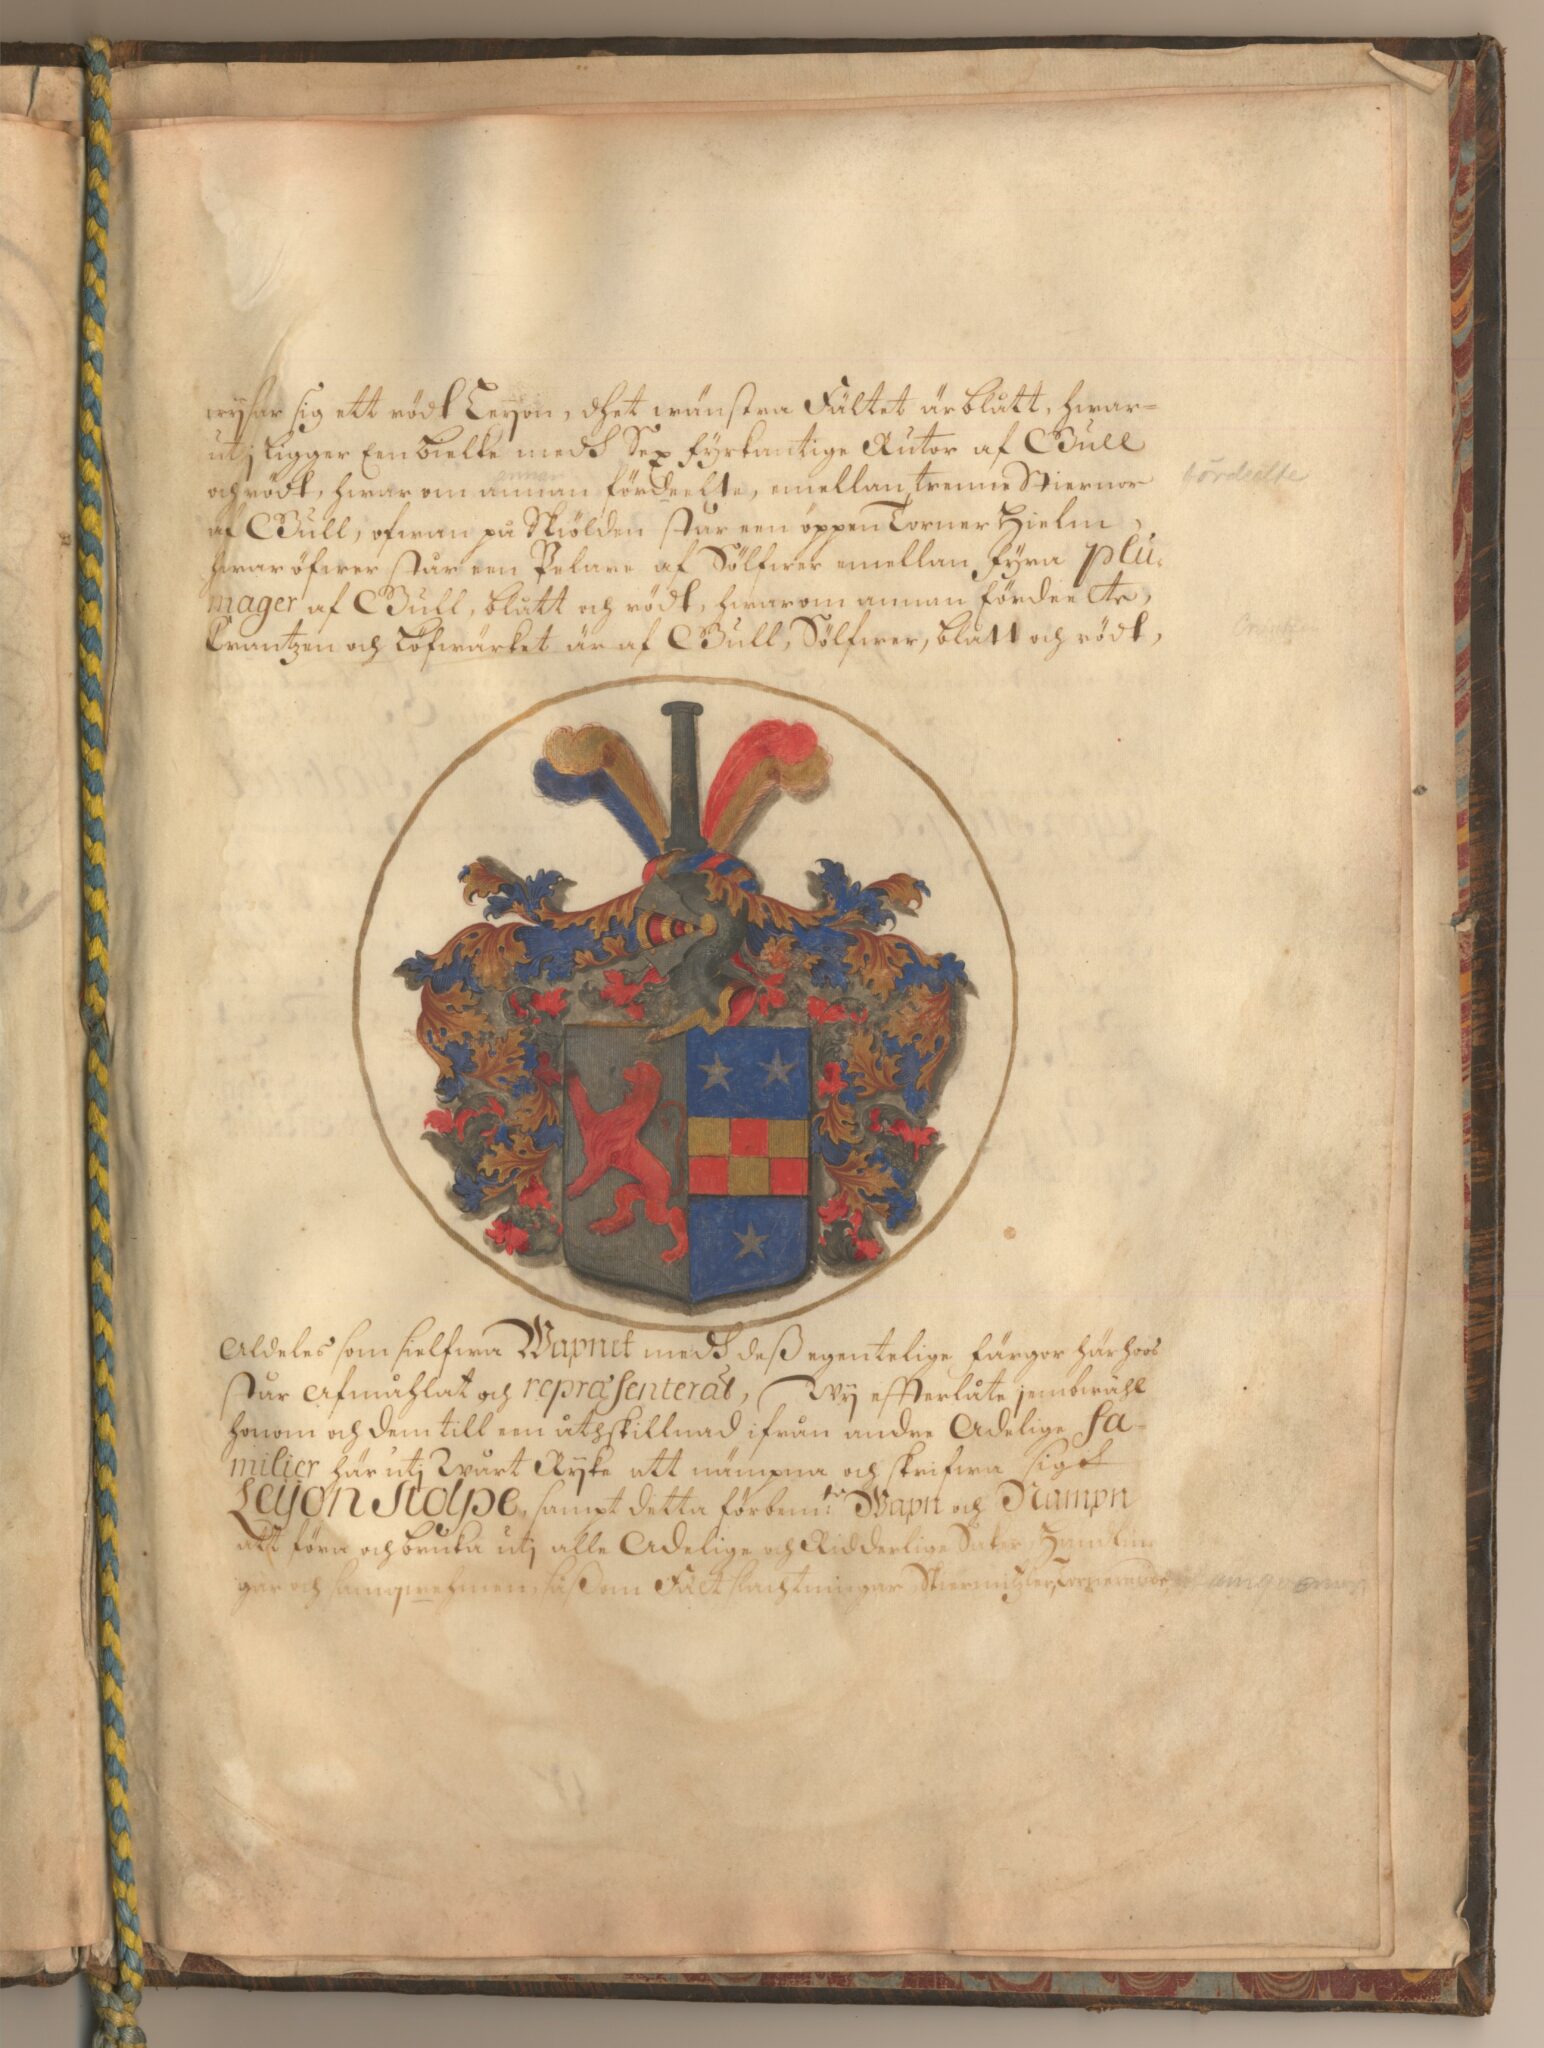 wysar sig ett rödt Leyon, dhet wänstra Fältet är blått, hwar=
utj ligger Een bielke medh Sex fyrkantige Rutor af Gull
och rödt, hwar om annan fördeelte, emellan trenne Stiernor
annan
fördeelte
af Gull, ofwan på Skiölden står een öppen Torner Hielm,
hwar öfwer står een Pelare af Sölfwer emellan fyra plu-
mager af Gull, blått och rödt, hwarom annan fördeelte,
Crantzen och Löfwärket är af Gull, Sölfwer, blått och rödt,
Crantzen
Aldeles som sielfwa Wapnet medh deß egentelige färgor här hoos
står afmåhlat och repræsenterat, Wy effterlåte jembwähl
honom och dem till een åthskillnad ifrån andre Adelige Fa-
milier här utj Wårt Ryke att nämpna och skrifwa sigh
Leyonstolpe, sampt detta förbem:te Wapn och Nampn
att föra och bruka utj alle Adelige och Ridderlige Saker, Handlin-
gar och Samqwehmen, såsom Fält slachtningar, Stiermützler,